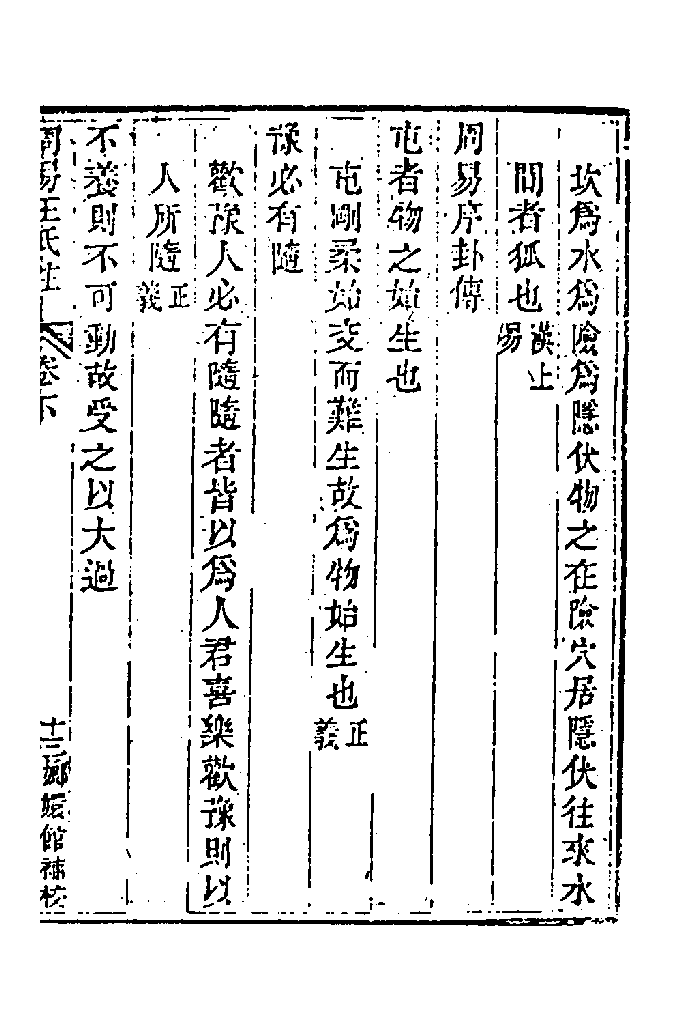 坎爲水爲險爲隱伏物之在險穴居隱伏往來水
間者狐也漢上易
周易序卦傳
屯者物之始生也
屯剛柔始交而難生故爲物始生也正義
豫必有隨
歡豫人必有隨隨者皆以爲人君喜樂歡豫則以
人所隨正義
不養則不可動故受之以大過
周易王氏注 卷下 十二 嫏嬛館補校